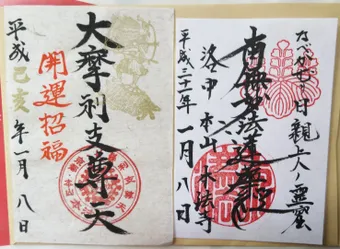 なべかむり日親上人ノ霊窟
南無妙法蓮華経
洛中 本山 本法寺
平成三十一年一月八日
大摩利支尊天
開運招福
平成己亥年一月八日